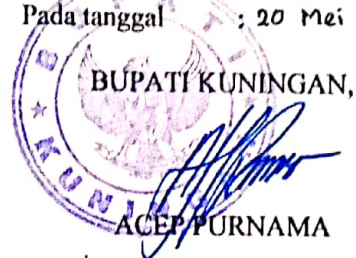 Pada tanggal : 20 Mei
BUPATI KUNINGAN,
ACEP PURNAMA